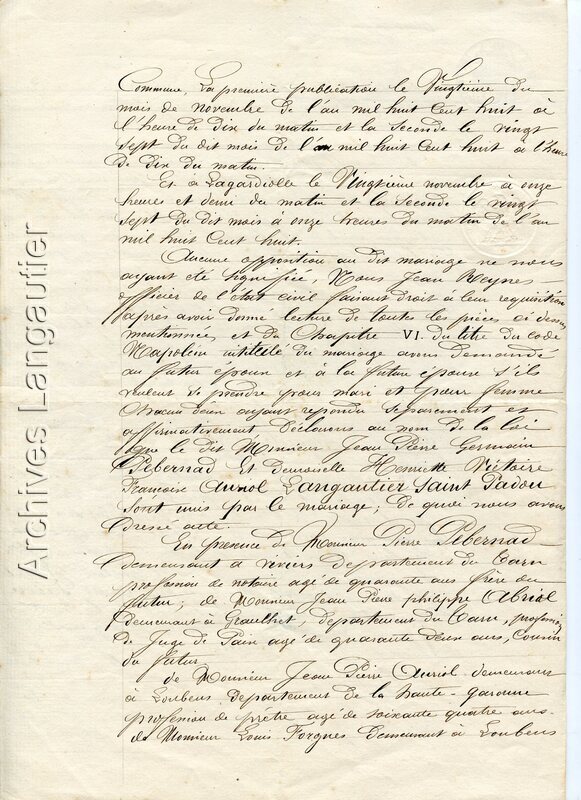 Commune, la première publication le Vingtième du
mois de novembre de l'an mil huit cent huit à
l'heure de dix du matin et la seconde le vingt
sept du dit mois de l'an mil huit cent huit à l'heure
de dix du matin.
Et a Lagardiolle le Vingtième novembre à onze
heures et demi du matin et la seconde le vingt
sept du dit mois à onze heures du matin de l'an
mil huit cent huit.
Aucune opposition au dit mariage ne nous
ayant été signifiée, Nous Jean Reynes
officier de l'état civil faisant droit à leur requisition
après avoir donné lecture de toutes les pièces ci dessus
mentionnées et du Chapitre VI du titre du code
Napoléon intitulé du mariage avons demandé
au futur époux et à la future épouse s'ils
veulent se prendre pour mari et pour femme
chacun deux ayant repondu separement et
affirmativement Déclarons au nom de la loi
que le dit Monsieur Jean Pierre Germain
Pebernad et demoiselle Henriette Victoire
Françoise Auriol Langautier Saint Padou
sont unis par le mariage; De quoi nous avons
dressé acte.
En presence de Monsieur Pierre Pebernad
demeurant a viviers departement du Tarn
profession de notaire agé de quarante ans frère du
futur; de Monsieur Jean Pierre philippe Abrial
demeurant à Graulhet, departement du Tarn, profession
de Juge de Paix agé de quarante deux ans, cousin
du futur
de Monsieur Jean Pierre Auriol demeurant
à Loubens Departement de la haute-garonne
profession de pretre agé de soixante quatre ans
de Monsieur Louis Forgues demeurant à Loubens
Archives Langautier